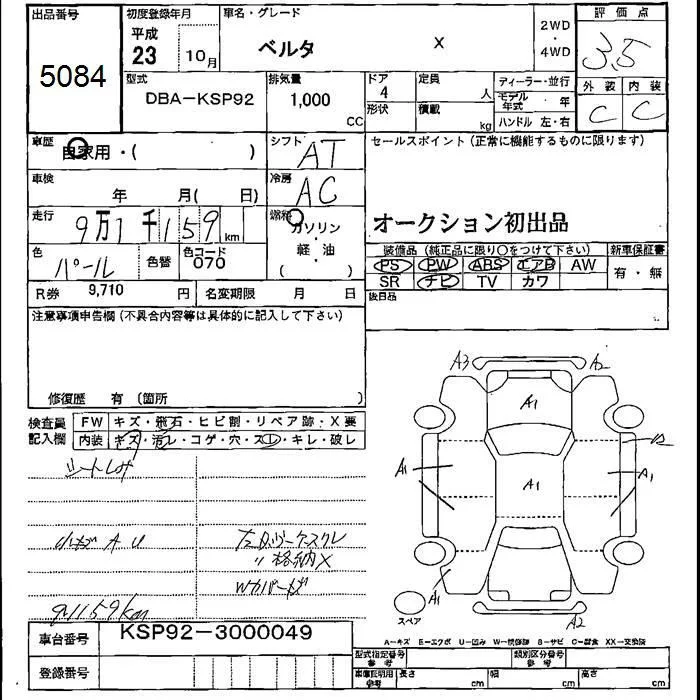 出品番号
5084
初度登録年月
平成
23 10月
車名・グレード
ベルタ X
2WD
・
4WD
評価点
3.5
外装 内装
C C
型式
DBA-KSP92
排気量
1,000
CC
ドア
4
形状
定員
人
積載
kg
ディーラー・並行
モデル
年式 年
ハンドル 左・右
車歴
自家用・( )
シフト
AT
セールスポイント(正常に機能するものに限ります)
車検
年 月( 日)
冷房
AC
走行
9万1千159km
燃料
ガソリン
・
軽・油
( )
オークション初出品
色
パール
色替
色コード
070
装備品(純正品に限り○をつけて下さい)
新車保証書
PS PW ABS エアB AW
有・無
SR ナビ TV カワ
R券 9,710 円
名変期限 月 日
後日品
注意事項申告欄(不具合内容等は具体的に記入して下さい)
修復歴 有(箇所 )
検査員
記入欄
FW キズ・飛石・ヒビ割・リペア跡・X要
内装 キズ・汚レ・コゲ・穴・スレ・キレ・破レ
シートしみ
小キズ A U
91159km
格納X
Wカバーキズ
A3 A2
A1
A1 A1 A1
A1
A2
スペア
A-キズ E-エクボ U-凹み W-補修跡 S-サビ C-腐食 XX-交換済
車台番号
KSP92-3000049
登録番号
型式指定番号
参考
類別区分番号
参考
車庫証明用
参考
長さ cm
幅 cm
高さ cm